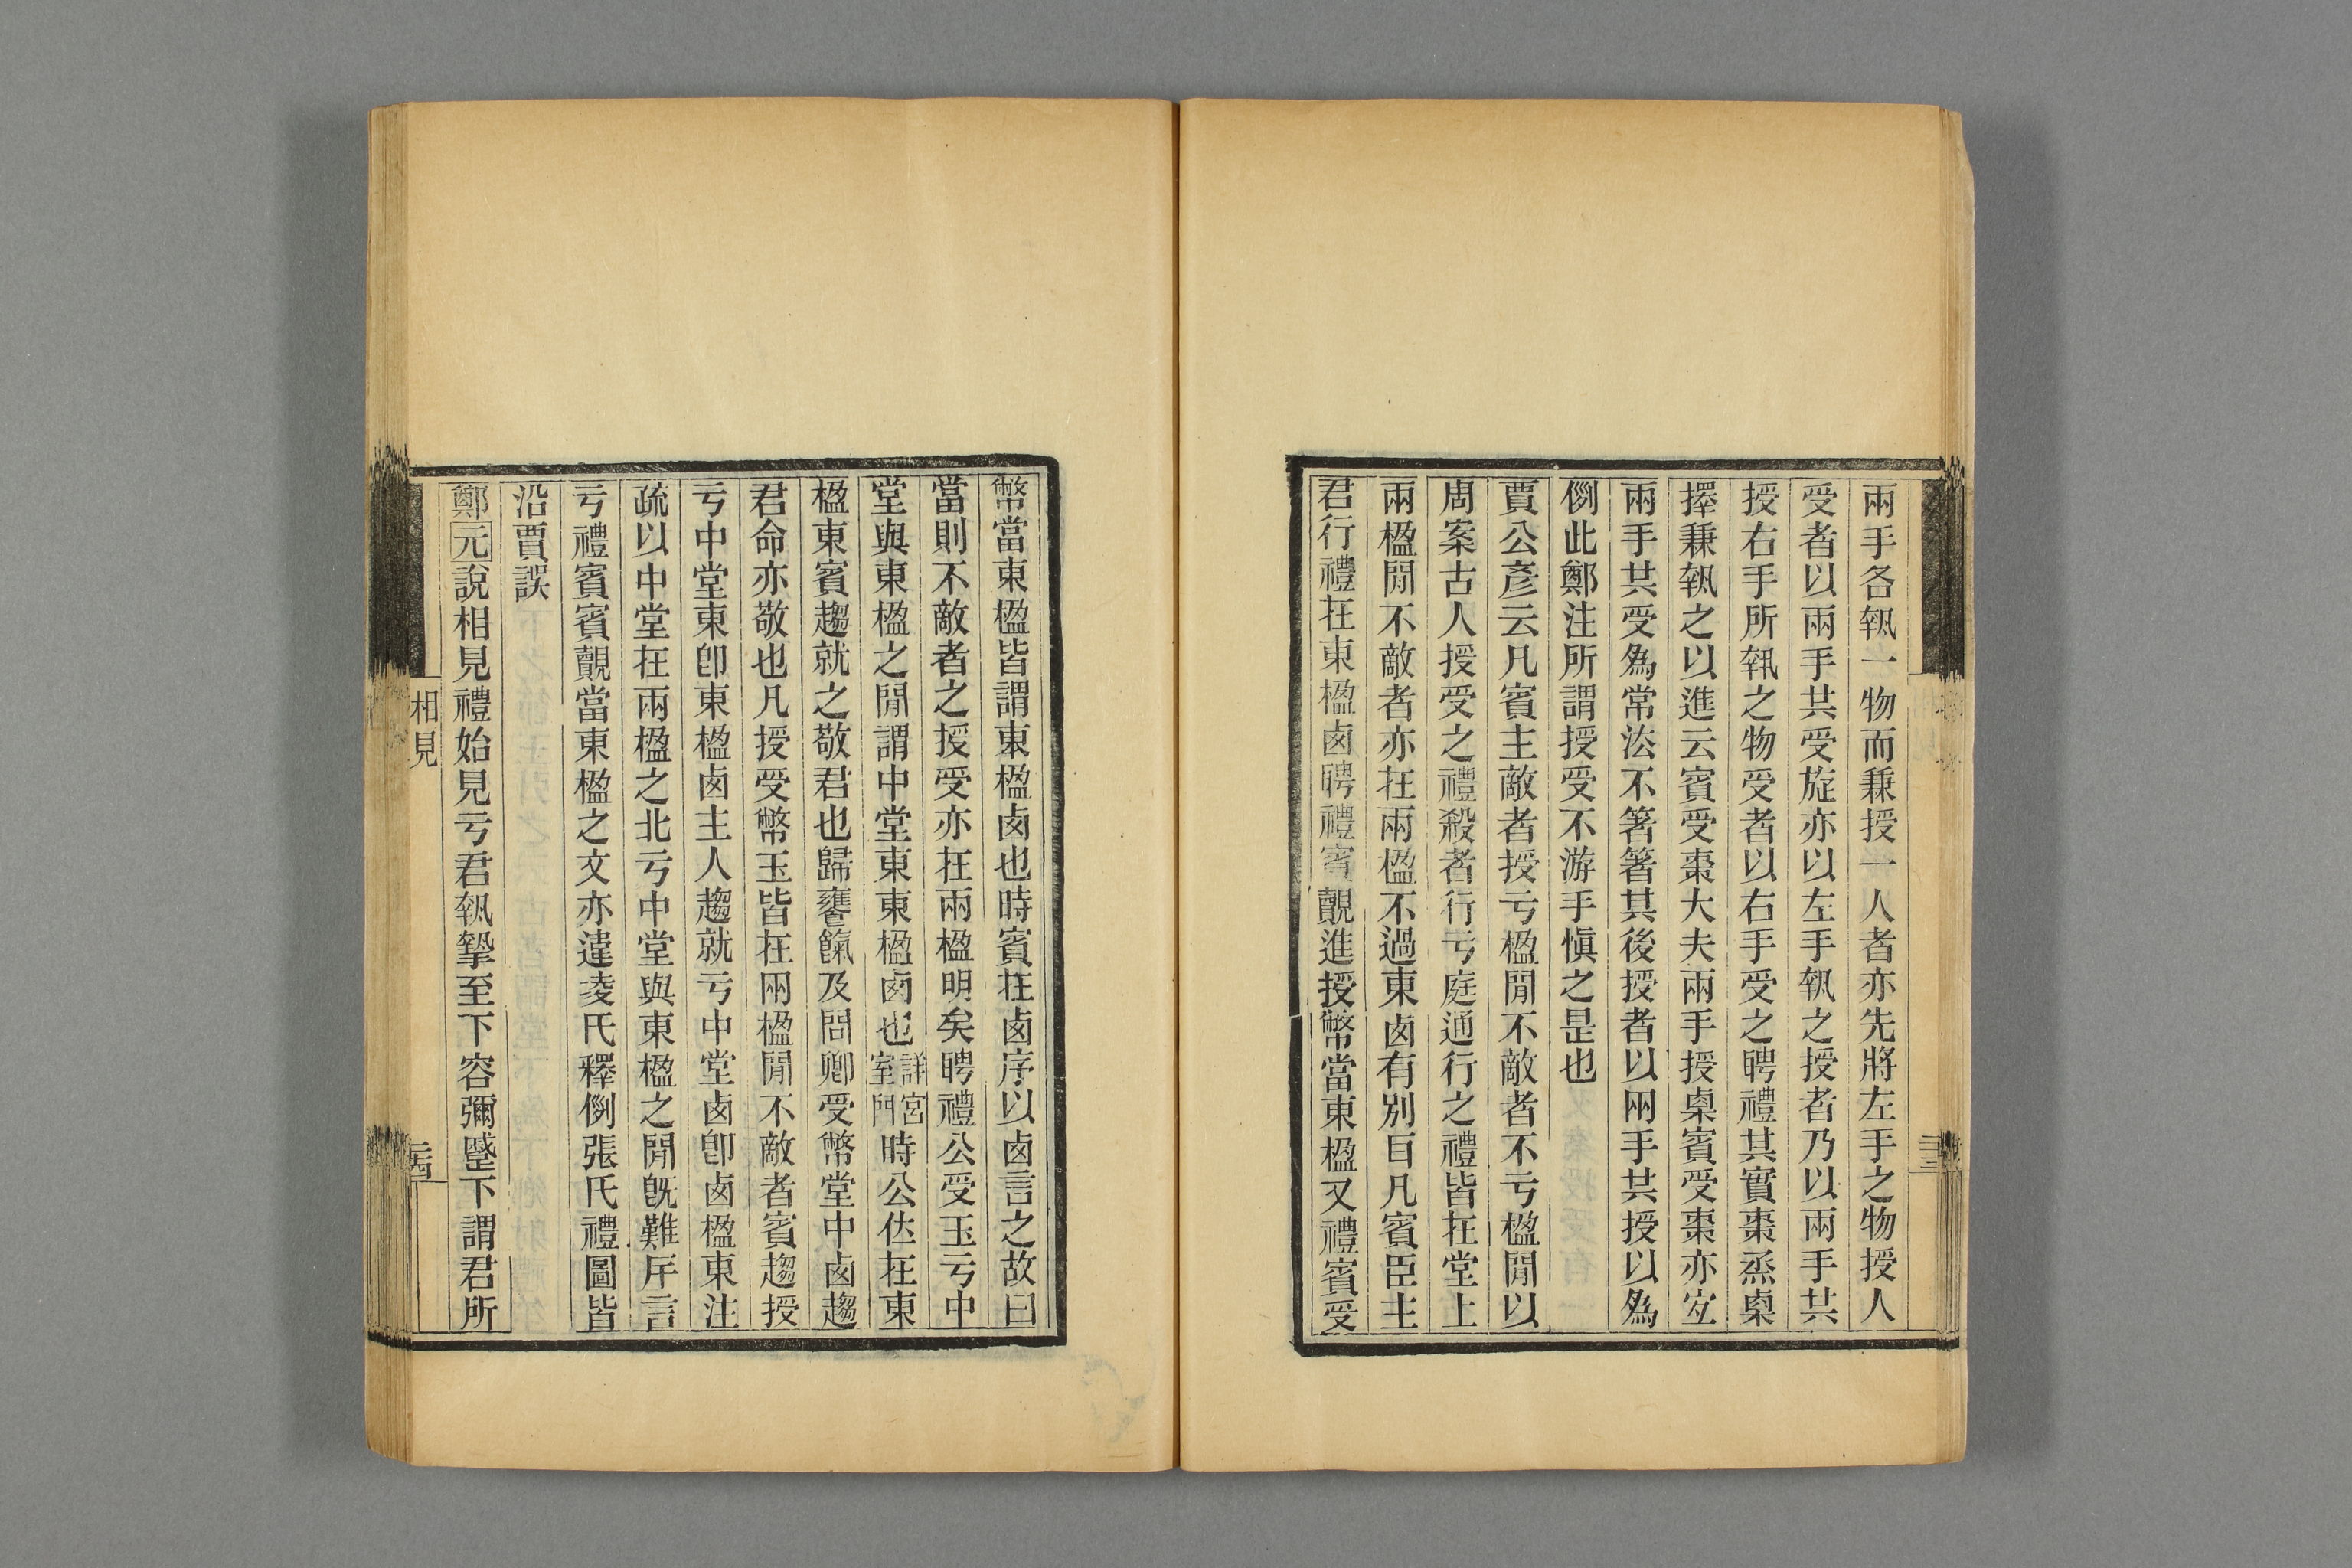 兩手各執一物而兼授一人者亦先將左手之物授人
受者以兩手共受㫌亦以左手執之授者乃以兩手共
授右手所執之物受者以右手受之聘禮其實棗烝㮚
擇兼執之以進云賓受棗大夫兩手授㮚賓受棗亦宐
兩手共受為常法不箸箸其後授者以兩手共授以為
例此鄭注所謂授受不游手愼之是也
賈公彥云凡賓主敵者授亏楹閒不敵者不亏楹閒以
周案古人授受之禮殺者行亏庭通行之禮皆在堂上
兩楹閒不敵者亦在兩楹不過東卥有別㠯凡賓臣主
君行禮在東楹卥聘禮賓覿進授幣當東楹又禮賓受
幣當東楹皆謂東楹卥也時賓在卥序以卥言之故曰
當則不敵者之授受亦在兩楹明矣聘禮公受玉亏中
堂與東楹之閒謂中堂東東楹卥也詳宮室門時公佐在東
楹東賓趨就之敬君也歸饔餼及問卿受幣堂中卥趨
君命亦敬也凡授受幣玉皆在兩楹閒不敵者賓趨授
亏中堂東卽東楹卥主人趨就亏中堂卥卽卥楹東注
疏以中堂在兩楹之北亏中堂與東楹之閒旣難斥言
亏禮賓賓覿當東楹之文亦違凌氏釋例張氏禮圖皆
沿賈誤
鄭元說相見禮始見亏君執摯至下容彌蹙下謂君所
相見
二十四
二十三